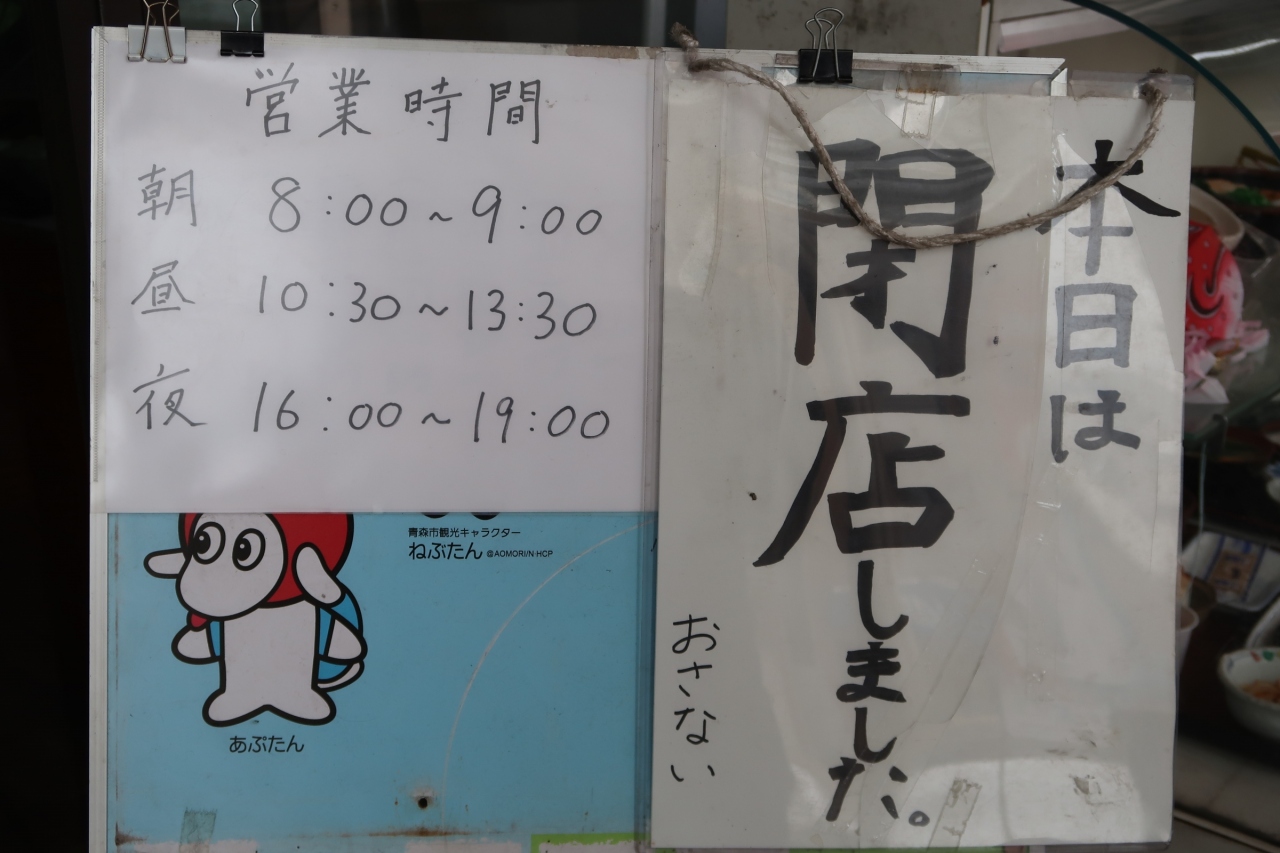 営業時間
朝 8:00~9:00
昼 10:30~13:30
夜 16:00~19:00
青森市観光キャラクター
ねぶたん @AOMORI/N・HCP
あぷたん
本日は
閉店しました。
おさない